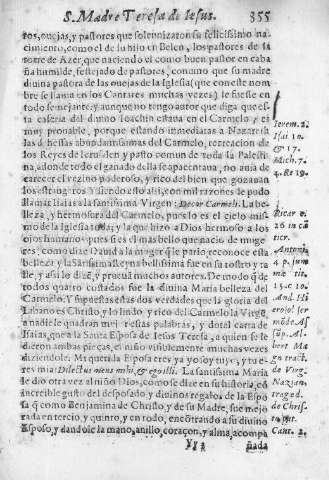 S. Madre Teresa de Iesus. 355
ros, ouejas, y pastores que solennizaron su felicissimo na-
cimiento, como el de su hijo en Belen, los pastores de la
torre de Azer, que naciendo el como buen pastor en caba
ña humilde, festejado de pastores, conuino que su madre
diuina pastora de las ouejas de la Iglesia (que con este nom
bre se llama en los Cantares muchas vezes) le fuesse en
todo semejante, y aunque no tengo autor que diga que es-
ta caseria del diuino Ioachin estaua en el Carmelo, es
muy prouable, porque estando inmediatas a Nazareth
las dehessas abundantissimas del Carmelo, recreacion de
los Reyes de Ierusalen y pasto comun de toda la Palesti-
na, adonde todo el ganado della se apacentaua, no auia de
carecer el varon poderoso, y rico del bien que gozauan
los estrangeros y siendo esto assi, con mil razones de pudo
llamar Isaias a la santissima Virgen: Decor Carmeli. La be-
lleza, y hermosura del Carmelo, pues lo es el cielo mis-
mo de la Iglesia toda, y la que hizo a Dios hermoso a los
ojos humanos pues si es el mas bello que nacio de muge-
res, como dize Dauid a la muger q̃ le pario, reconoce esta
belleza y la santissima bellissima fue en su rostro y ta-
lle, y assi lo dizẽ, y prueuã muchos autores. De modo q̃ de
todos quatro costados fue la diuina Maria belleza del
Carmelo. Y supuestas estas dos verdades que la gloria del
Libano es Christo, y lo lindo, y rico del Carmelo la Virgẽ,
a nadie le quadran mas estas palabras, y dotal carta de
Isaias, que a la Santa Esposa de Iesus Teresa, a quien se le
dieron ambas piezas, el niño visiblemente muchas vezes
diziendole. Mi querida Esposa tres ya yo soy tuyo, y tu e-
res mia Dilectus meus mihi, & ego illi. La santissima Maria
le dio otra vez al niño Dios, como se dize en su historia, cõ
increible gusto del desposado, y diuinos regalos de la Espo
sa q̃ como Benjamina de Christo, y de su Madre, fue mejo
rada en tercio, y quinto, y en todo, encõtrando a su diuino
Esposo, y dandole la mano, anillo, coraçon, y alma, acompa
Yy 2 ñada
Ierem. 2.
Isai 10.
& 17.
Mich. 7.
4. Re 19.
26 in cã
ticor.
Antonin
4 p. sum
mæ tit.
15. c 10.
And. Hi
erosol ser
mõ de As
sũp. Al-
bert Ma
gn tract.
de Virg.
Nazian.
traged.
de Chris.
Cant. 2.